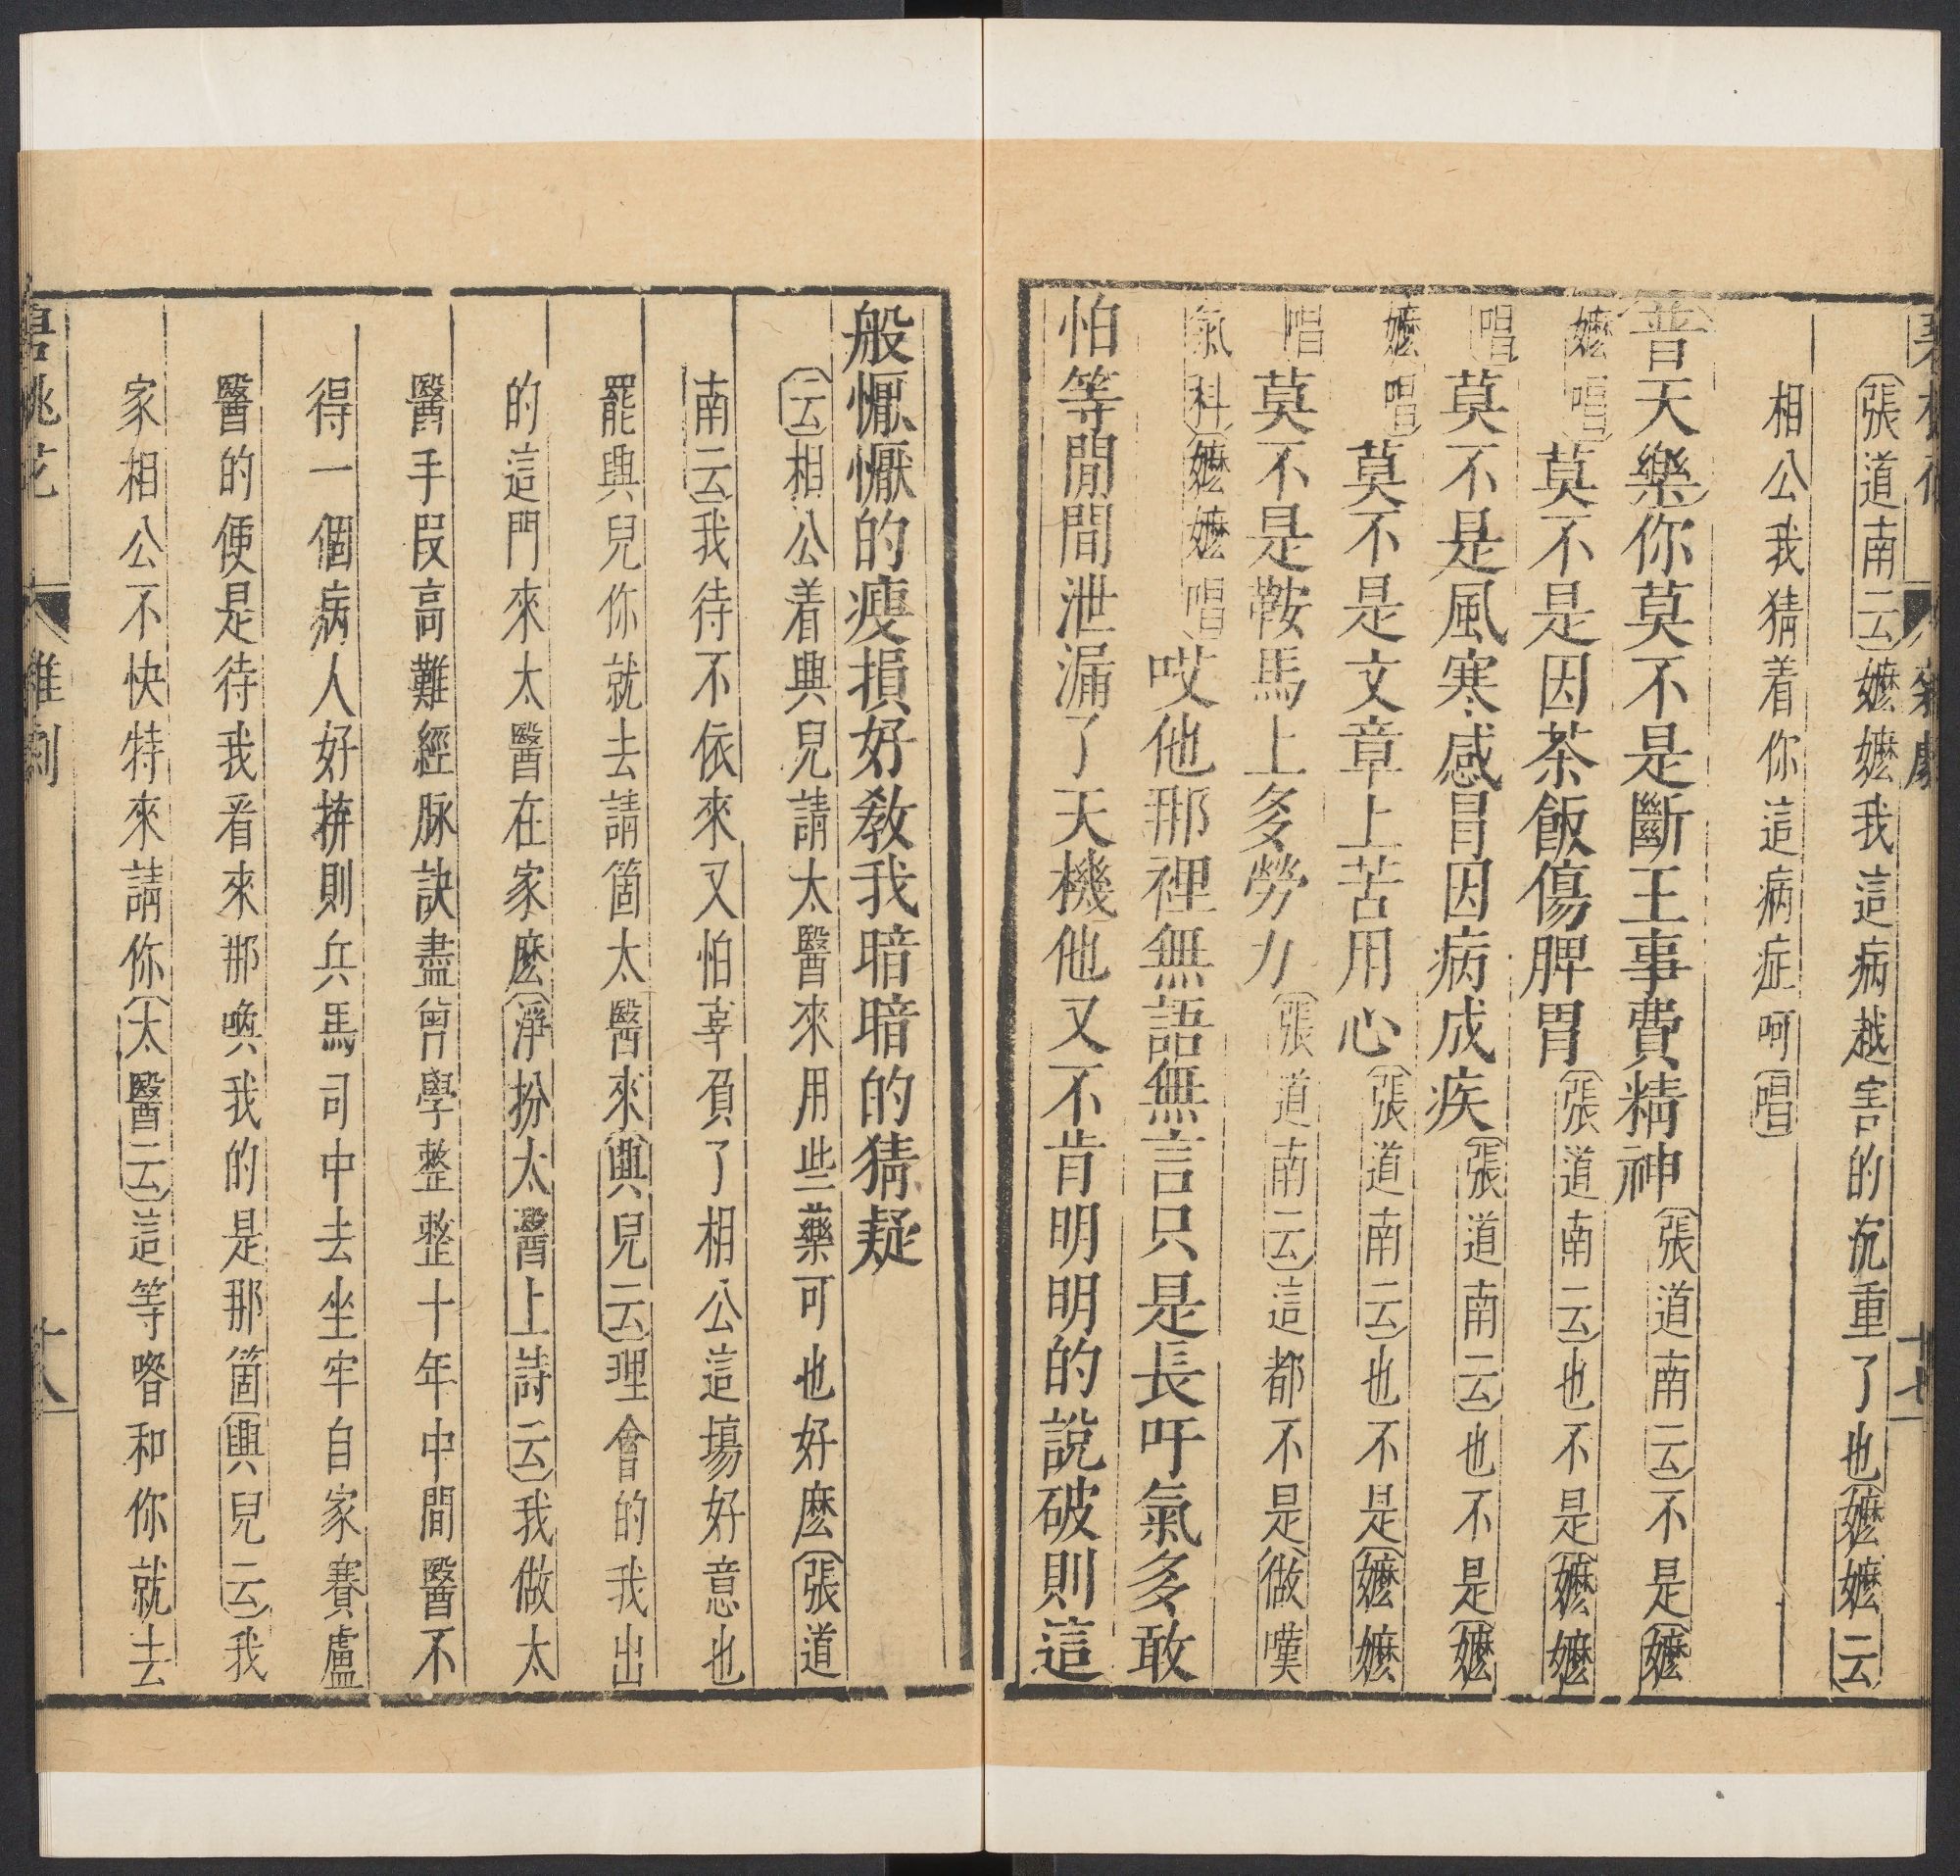 雜劇
十七
張道南云嬷嬷我這病越害的沉重了也嬷嬷云
相公我猜着你這病症呵唱
普天樂你莫不是斷王事費精神張道南云不是嬷
嬷唱莫不是因茶飯傷脾胃張道南云也不是嬷嬷
唱莫不是風寒感冒因病成疾張道南云也不是嬷
嬷唱莫不是文章上苦用心張道南云也不是嬷嬷
唱莫不是鞍馬上多勞力張道南云這都不是做嘆
氣科嬷嬷唱哎他那裡無語無言只是長吁氣多敢
怕等閒間泄漏了天機他又不肯明明的說破則這
般懨懨的瘦損好教我暗暗的猜疑
云相公着興兒請太醫來用些藥可也好麽張道
南云我待不依來又怕辜負了相公這塲好意也
罷興兒你就去請箇太醫來興兒云理會的我出
的這門來太醫在家麽淨扮太醫上詩云我做太
醫手段高難經脉訣盡曾學整整十年中間醫不
得一個病人好拚則兵馬司中去坐牢自家賽盧
醫的便是待我看來那喚我的是那箇興兒云我
家相公不快特來請你太醫云這等喒和你就去
碧桃花
雜劇
十八